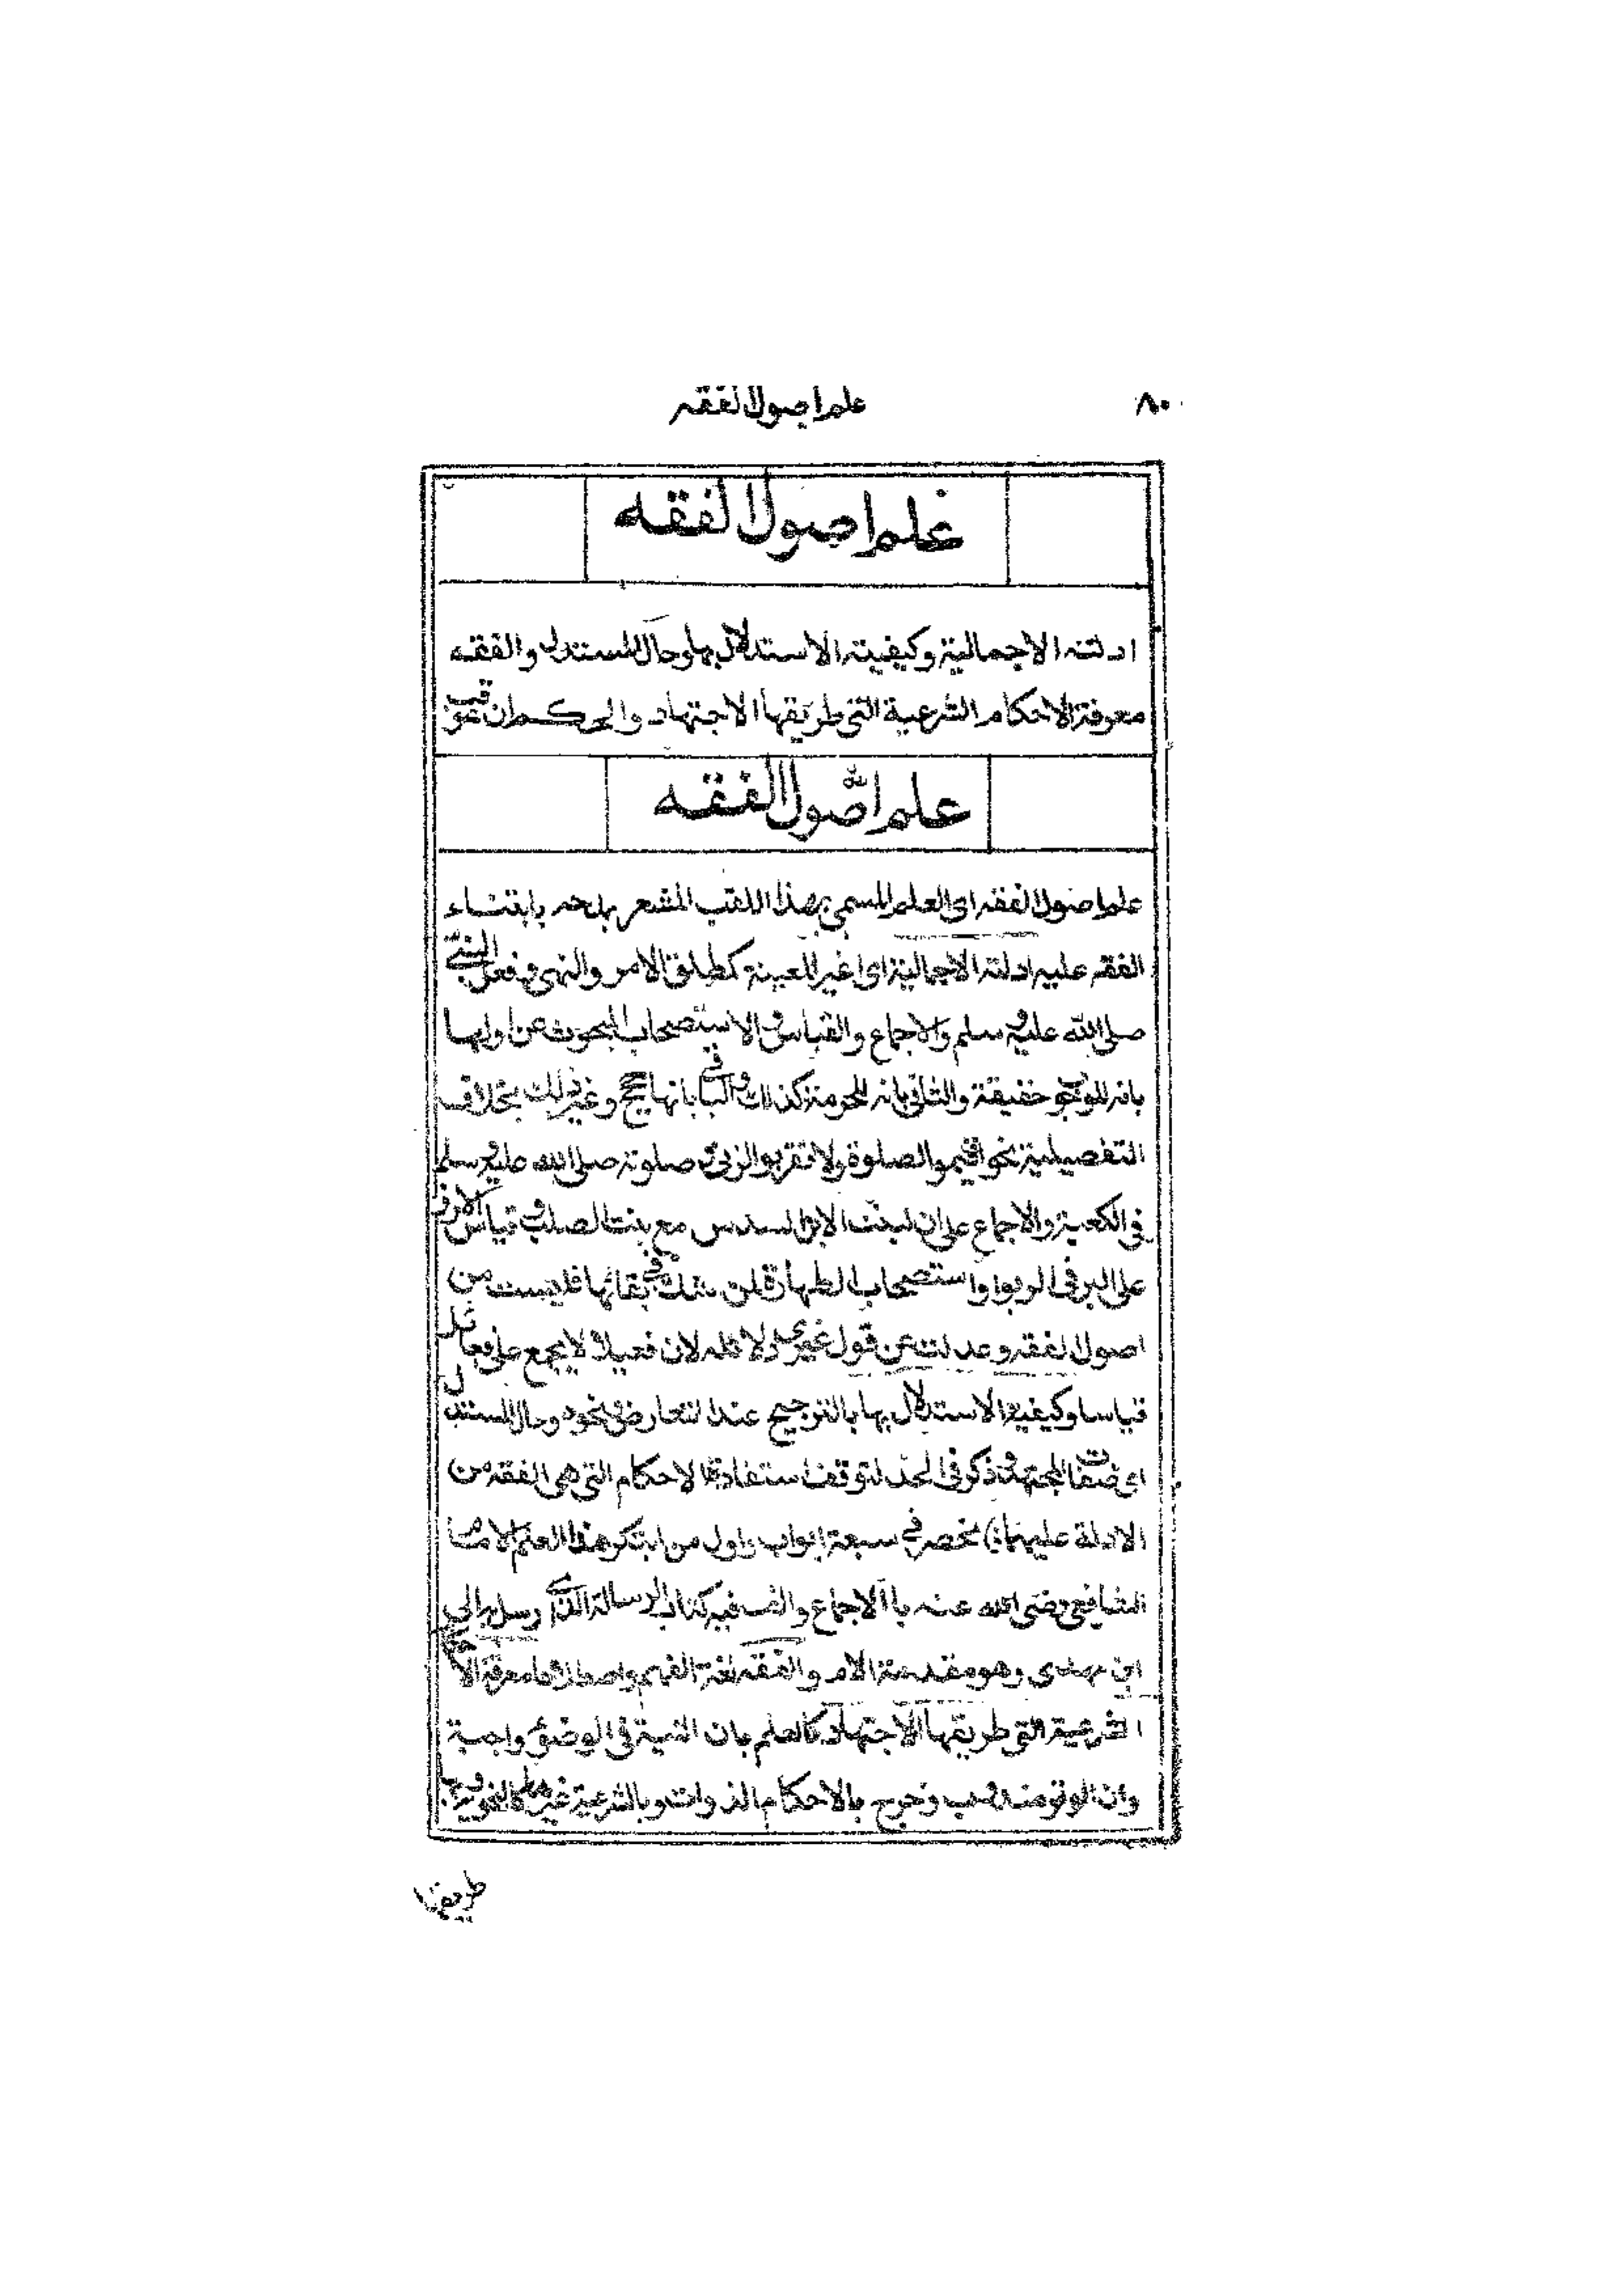 ٨٠
علم اصول الفقه
علم اصول الفقه
ادلته الاجمالية وكيفية الاستدلال بها وحال المستدل والفقه
معرفة الاحكام الشرعية التى طريقها الاجتهاد والحكم ان عوقب
علم اصول الفقه
علم اصول الفقه اى العلم المسمى بهذا اللقب المشعر بمدحه بابتناء
الفقه عليه ادلته الاجمالية اى غير المعينة كمطلق الامر والنهى وفعل النبى
صلى الله عليه وسلم والاجماع والقياس والاستصحاب المبحوث عن اولها
بانه للوجوب حقيقة والثانى بانه للحرمة كذلك والباقى بانها حجج وغير ذلك بخلاف
التفصيلية نحو اقيموا الصلوة ولا تقربوا الزنى وصلوته صلى الله عليه وسلم
فى الكعبة والاجماع على ان لبنت الابن السدس مع بنت الصلب وقياس الارز
على البر فى الربوا واستصحاب الطهارة لمن شك فى بقائها فليست من
اصول الفقه وعدلت عن قول غيرى دلائله لان فعيلا لا يجمع على فعائل
قياسا وكيفية الاستدلال بها بالترجيح عند التعارض ونحوه وحال المستدل
اى صفات المجتهد وذكر فى الحد لتوقف استفادة الاحكام التى هى الفقه من
الادلة عليهما وينحصر فى سبعة ابواب واول من ابتكر هذا العلم الامام
الشافعى رضى الله عنه بالاجماع والف فيه كتاب الرسالة الذى ارسل به الى
ابن مهدى وهو مقدمة الام والفقه لغة الفهم واصطلاحا معرفة الاحكام
الشرعية التى طريقها الاجتهاد كالعلم بان النية فى الوضوء واجبة
وان الوتر مندوب وخرج بالاحكام الذوات وبالشرعية غيرها كالنحوية
طريقها